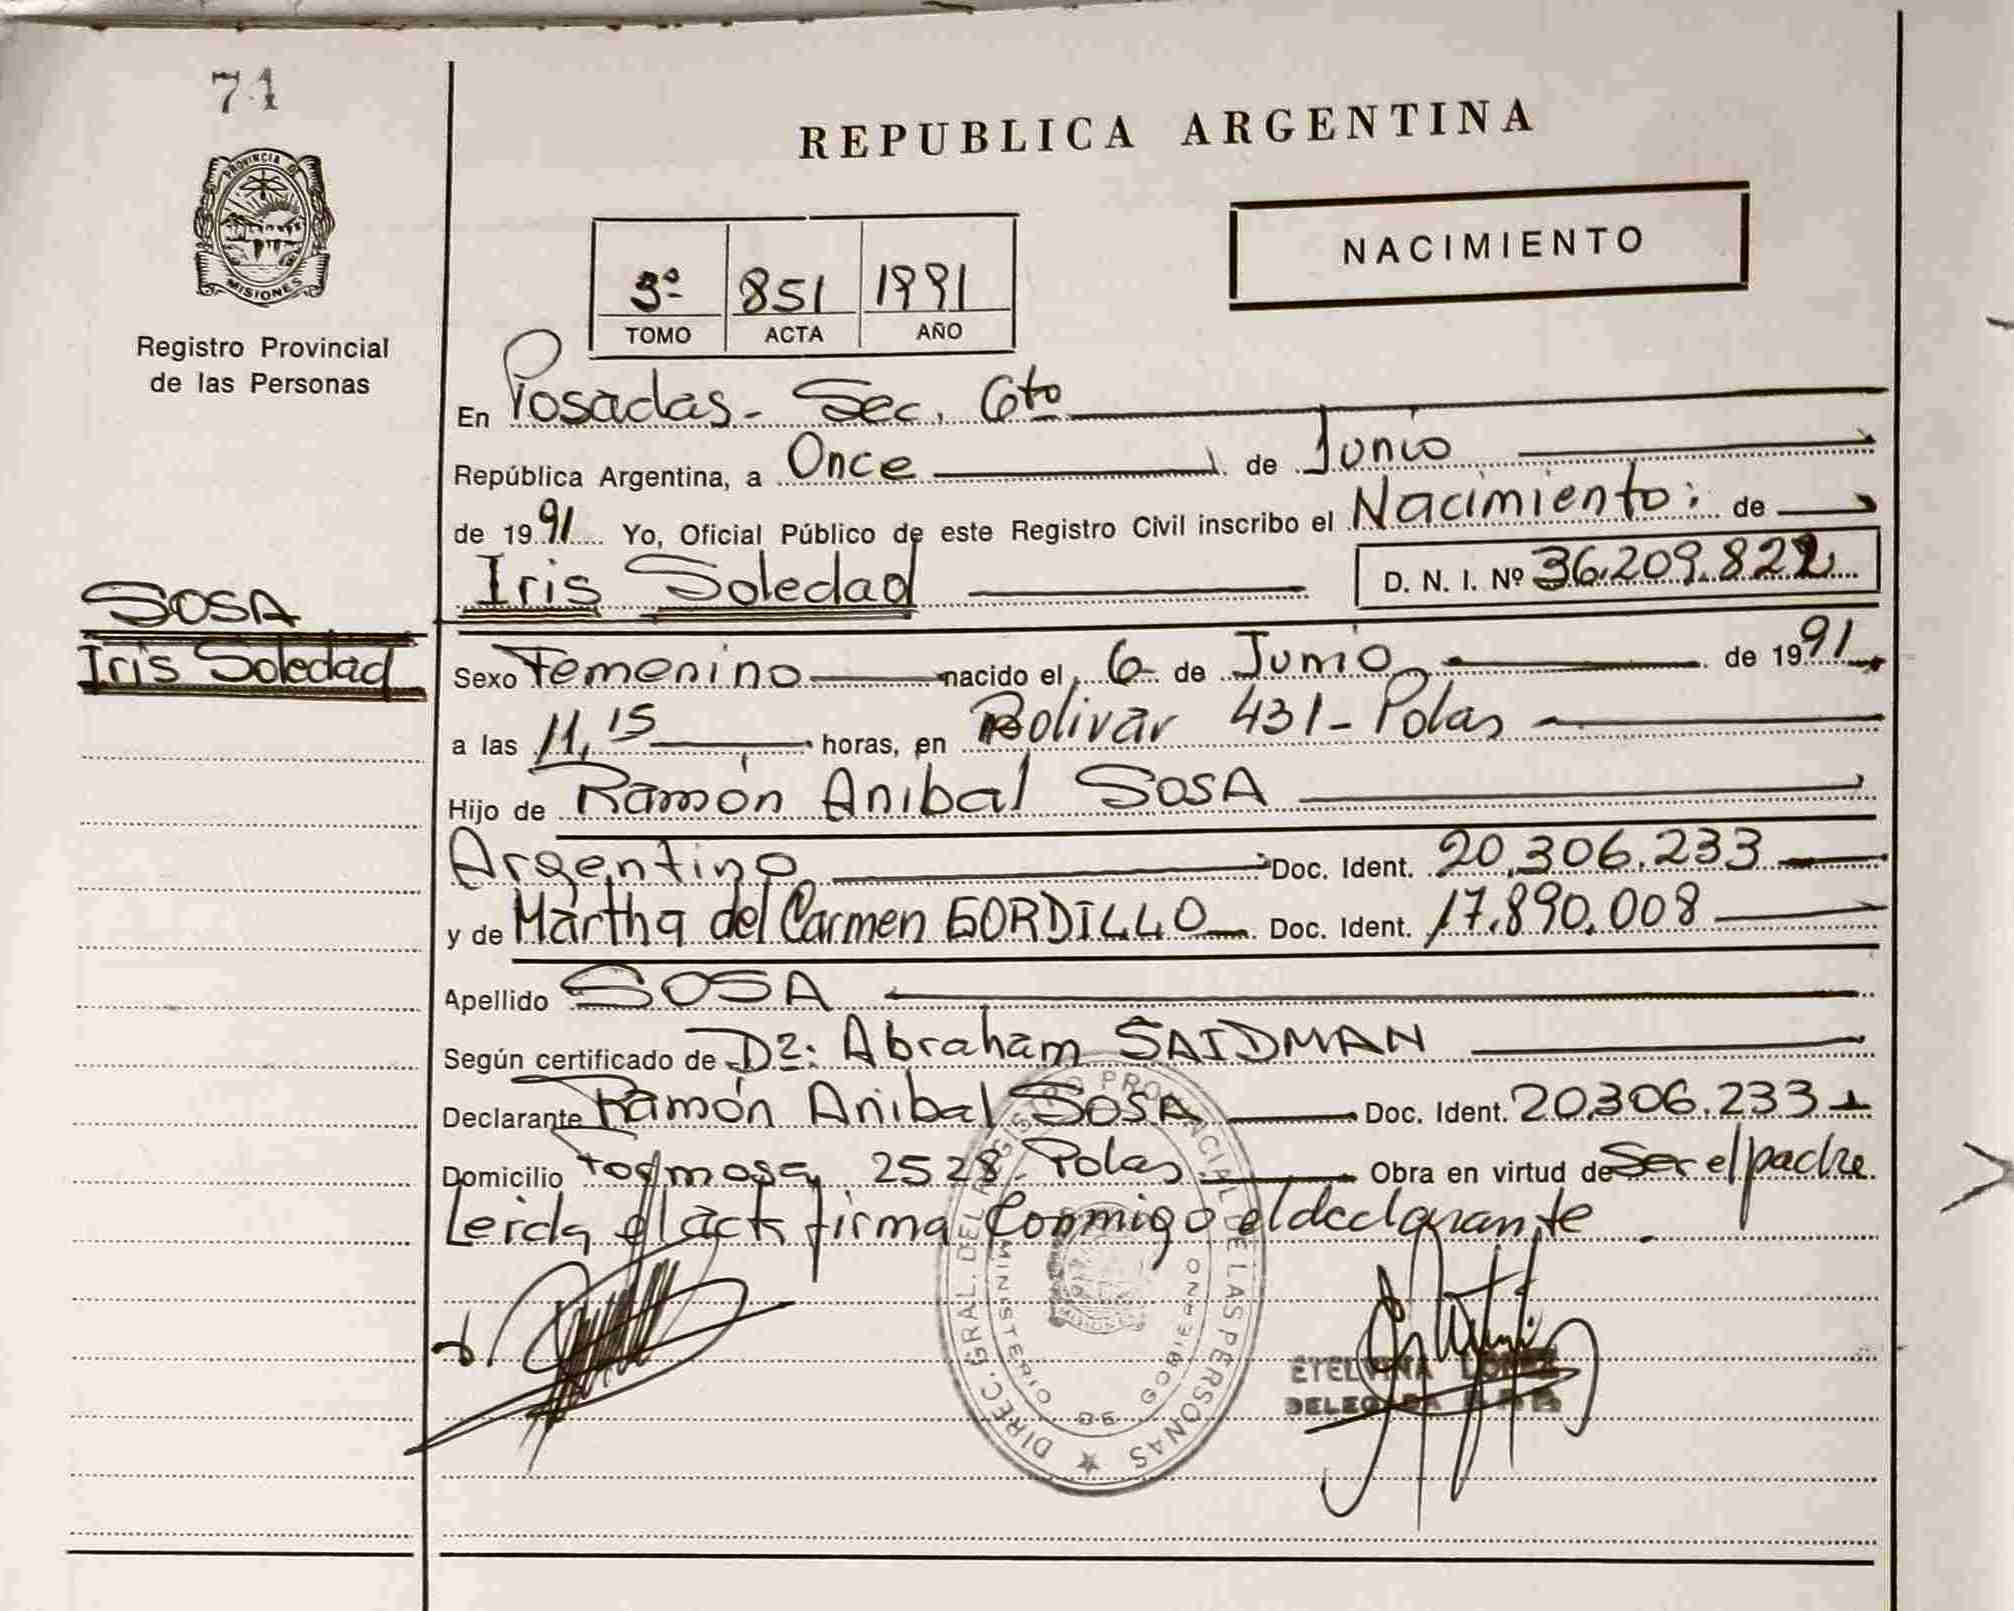 74
PROVINCIA DE
MISIONES
Registro Provincial
de las Personas
SOSA
Iris Soledad
REPUBLICA ARGENTINA
NACIMIENTO
3º 851 1991
TOMO ACTA AÑO
En Posadas - Sec. 6to
República Argentina, a Once de Junio
de 1991 Yo, Oficial Público de este Registro Civil inscribo el Nacimiento: de
Iris Soledad D. N. I. Nº 36.209.822
Sexo Femenino nacido el 6 de Junio de 1991
a las 11,15 horas, en Bolivar 431 - Pdas
Hijo de Ramón Anibal SOSA
Argentino Doc. Ident. 20.306.233
y de Martha del Carmen GORDILLO Doc. Ident. 17.890.008
Apellido SOSA
Según certificado de Dr: Abraham SAIDMAN
Declarante Ramón Anibal SOSA Doc. Ident. 20.306.233
Domicilio Formosa 2528 - Pdas Obra en virtud de Ser el padre
Leida el acta firma Conmigo el declarante.
DIREC. GRAL. DEL REGISTRO PROVINCIAL DE LAS PERSONAS
MINISTERIO DE GOBIERNO
ETELVINA LOPEZ
DELEGADA